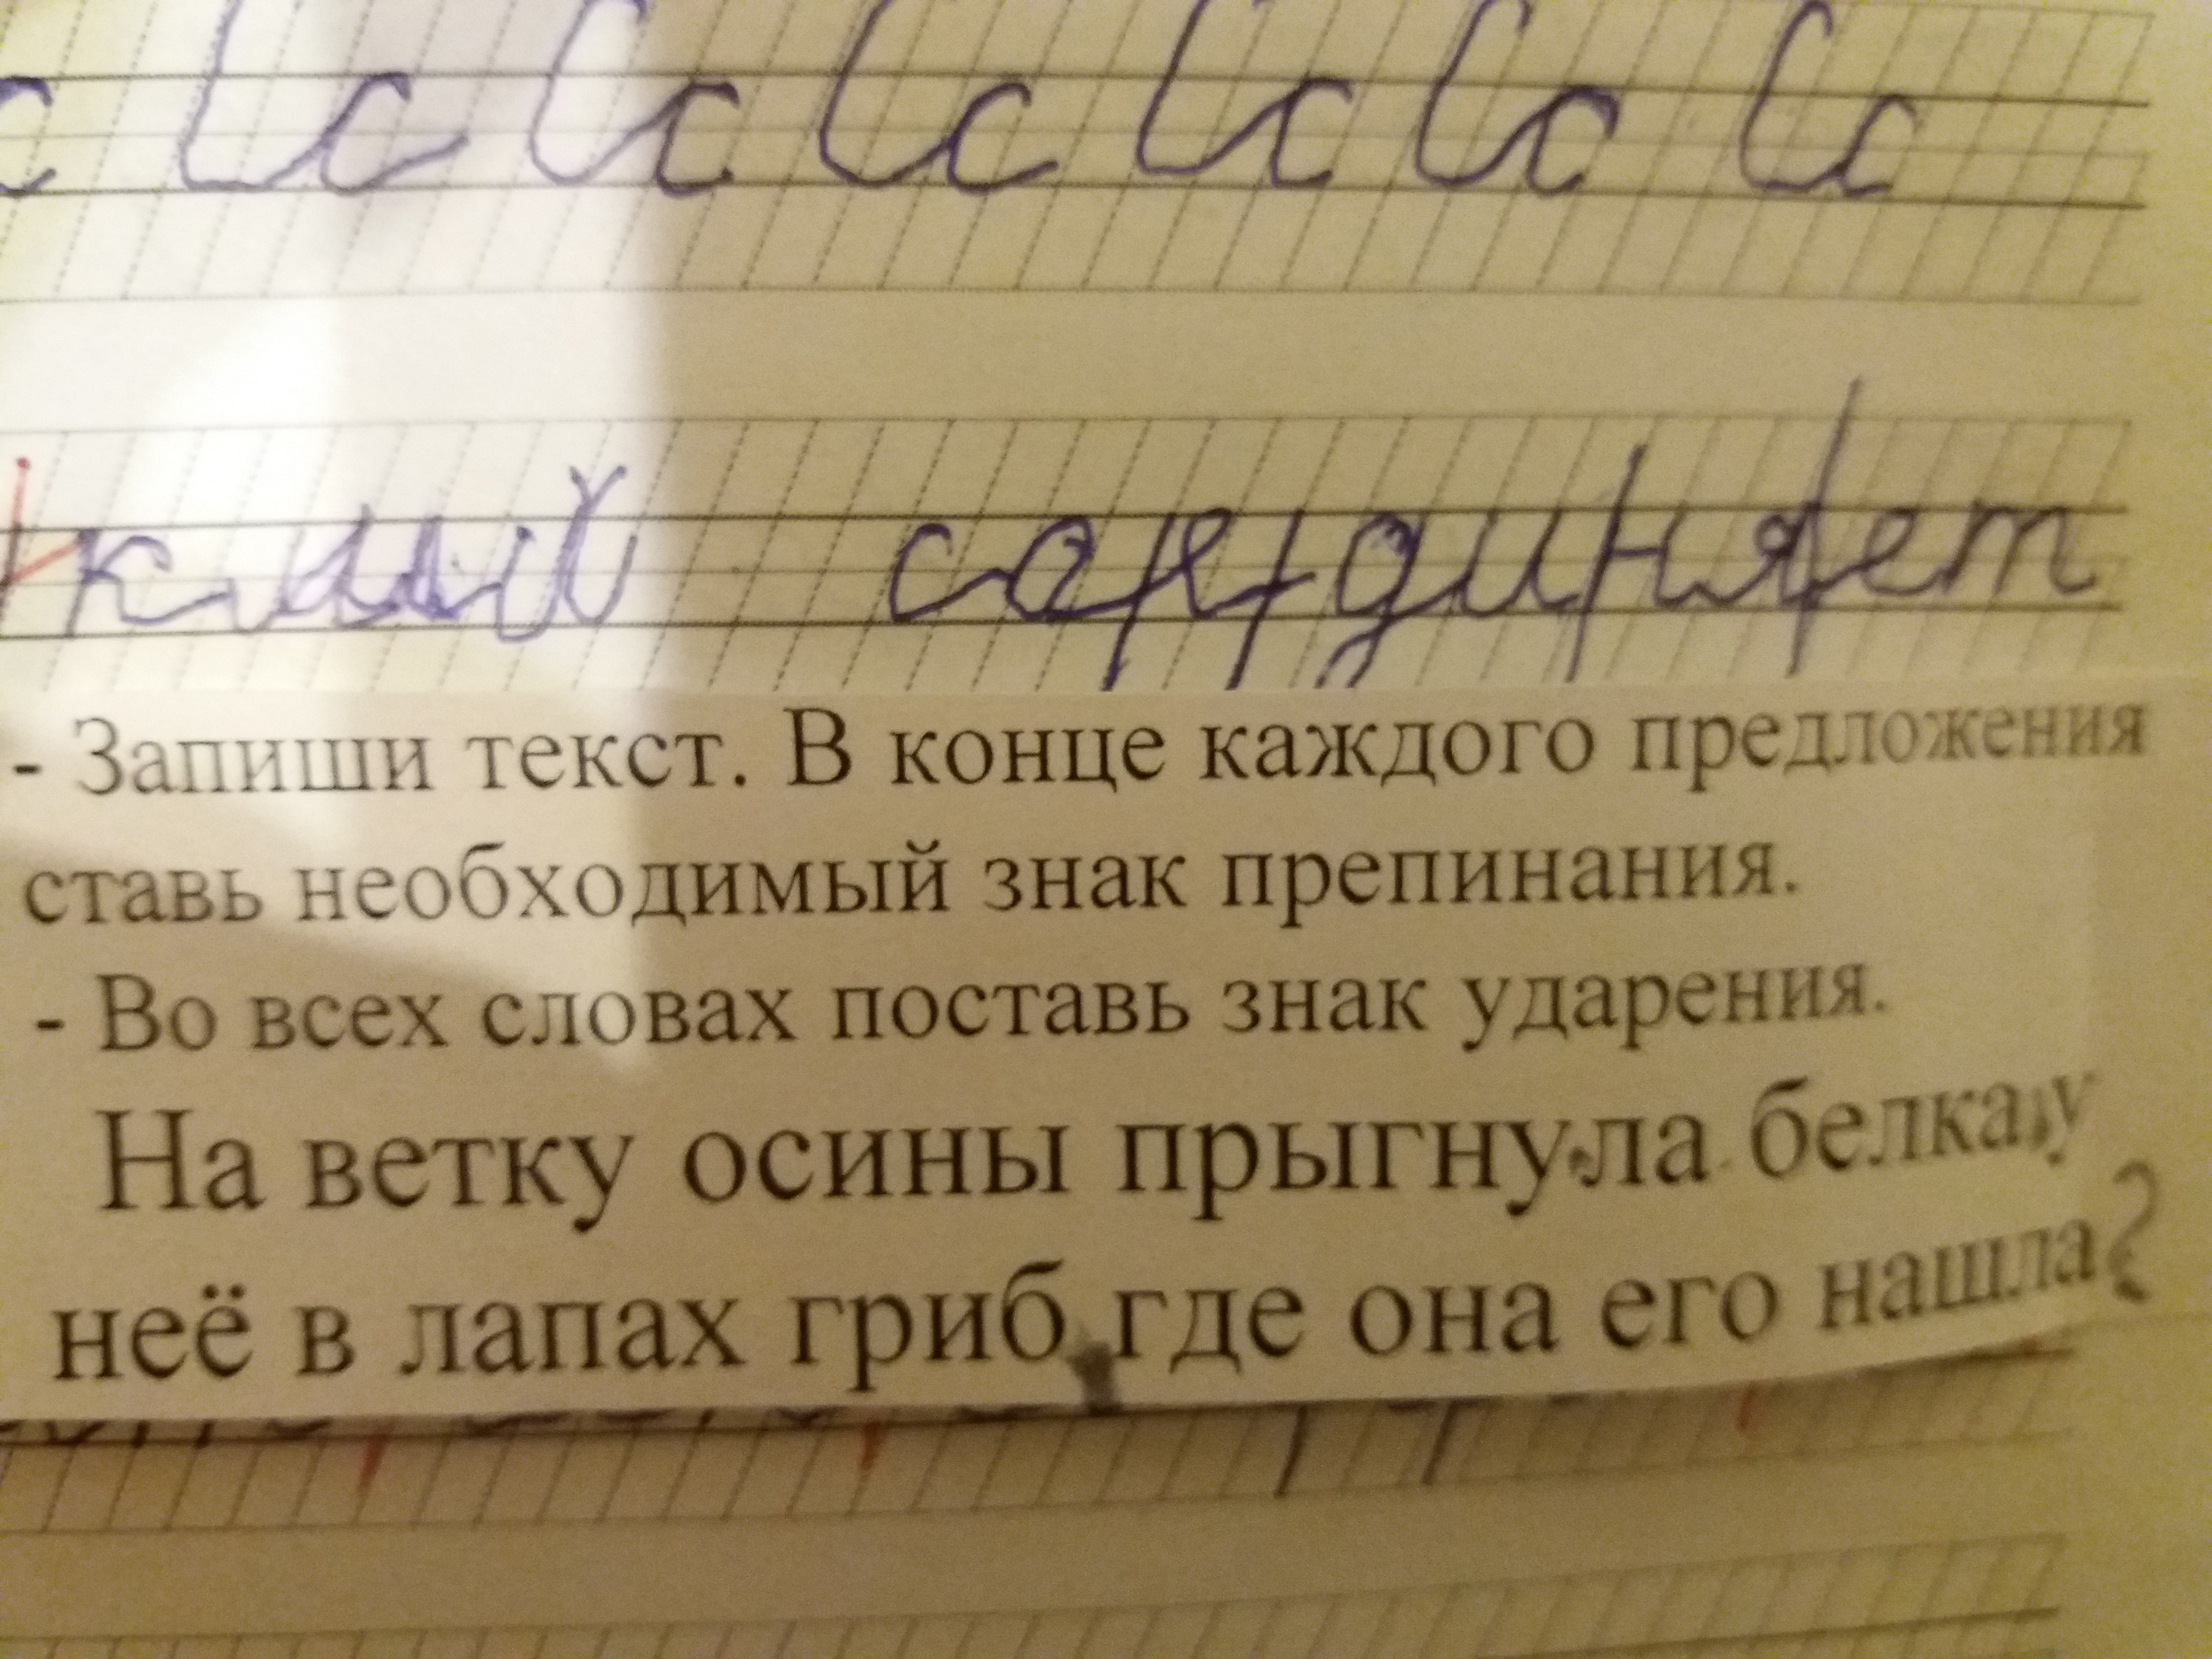 с Сс Сс Сс Сс Сс Сс
- Запиши текст. В конце каждого предложения
ставь необходимый знак препинания.
- Во всех словах поставь знак ударения.
На ветку осины прыгнула белка у
неё в лапах гриб где она его нашла?